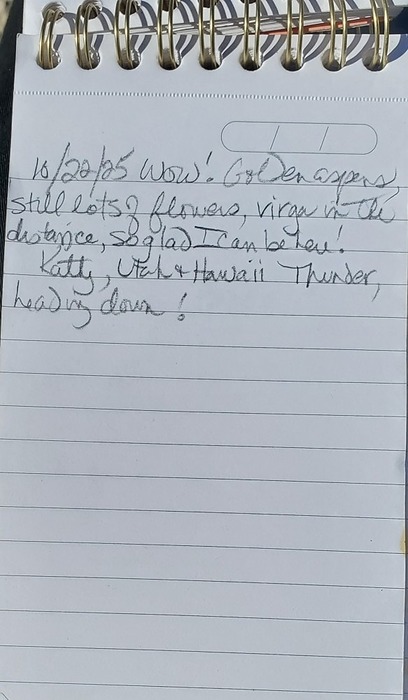 10/20/25 Wow! Golden aspens,
still lots of flowers, virga in the
distance, so glad I can be here!
Katty, Utah & Hawaii Thunder,
heading down!